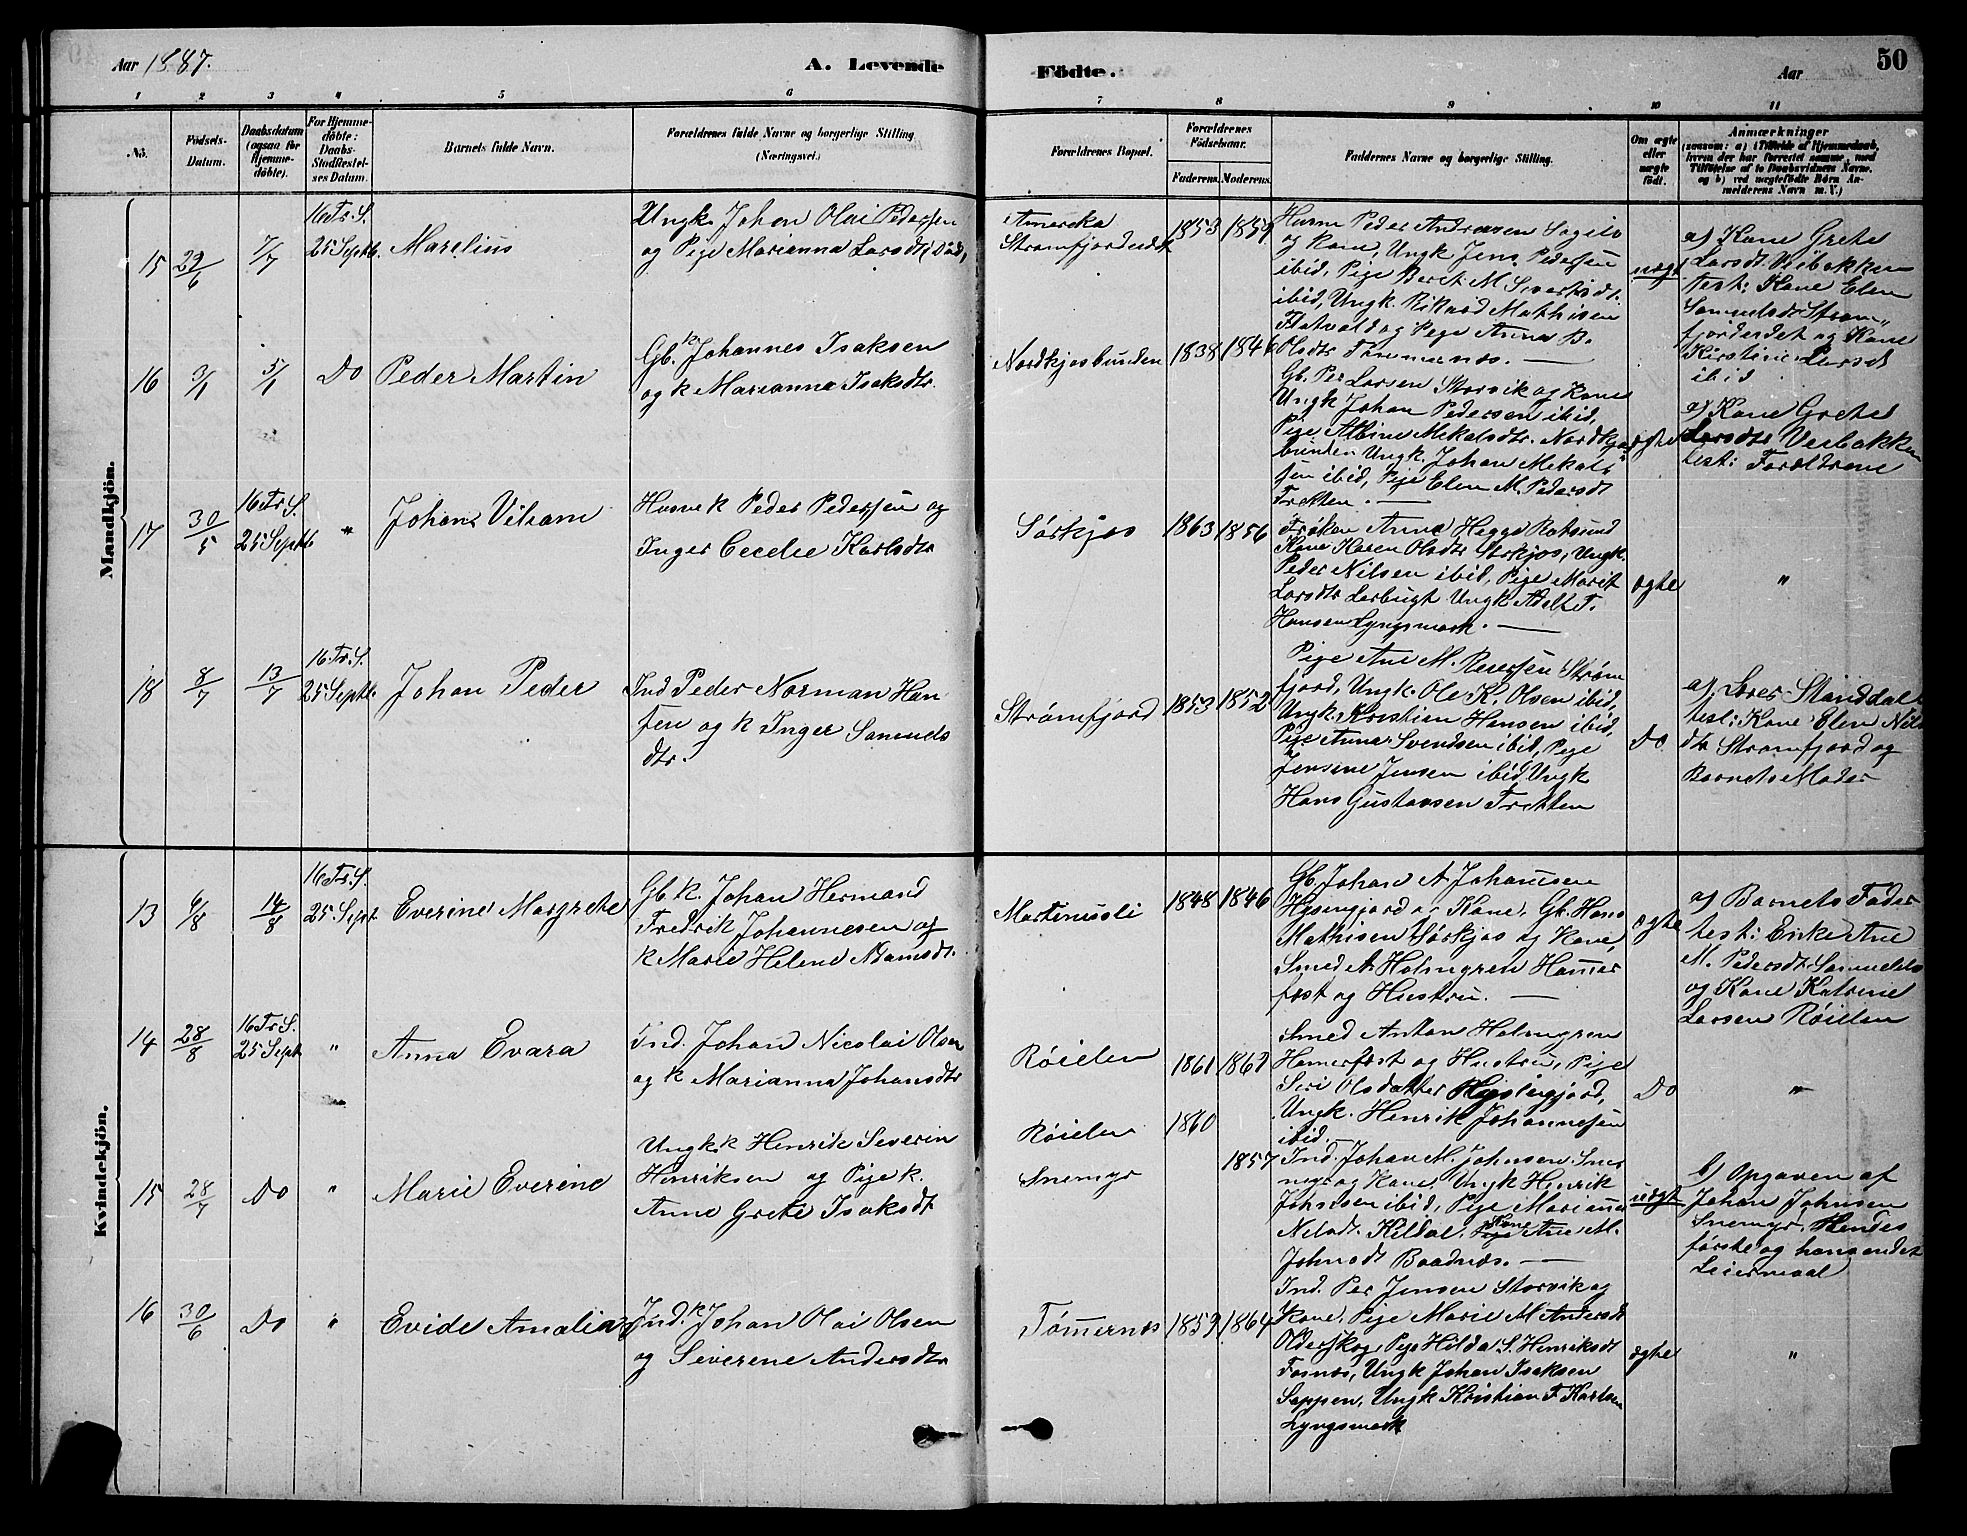 Aar 1887.
A. Levende
Födte.
Aar
50
1 2 3 4 5 6 7 8 9 10 11
No.
Födsels-
Datum.
Daabsdatum
(ogsaa for
Hjemme-
döbte).
For Hjemme-
döbte:
Daabs-
Stadfæstel-
ses Datum.
Barnets fulde Navn.
Forældrenes fulde Navne og borgerlige Stilling
(Næringsvei.)
Forældrenes Bopæl.
Forældrenes
Födselsaar.
Faderens. Moderens.
Faddernes Navne og borgerlige Stilling.
Om ægte
eller
uægte
födt.
Anmærkninger
(saasom: a) i Tilfælde af Hjemmedaab,
hvem der har forrettet samme, med
Tilföielse af to Daabsvidners Navne,
og b) ved uægtefödte Börn An-
melderens Navn m. V.)
Mandkjön.
15 29/6 7/7
16 Tr. S.
25 Septb.
Marelius
Ungk. Johan Olai Pedersen
og Pige Marianna Larsdt (Död)
Amereka
Strømfjordeidet
1853
og Kane, Ungk Jens Pedersen
ibid, Pige Beret M Sivertsdt.
ibid, Ungk. Rikard Mathisen
Flatvold og Pige Anna B.
Olsdtr
uægt
a) Kone Grete
Larsdt Veibakken
test: Kone Elen
Samuelsdt Strøm-
fjordeidet og Kone
Kirstine Larsdt
ibid.
16 3/1 5/1 Do
Peder Martin
Gbk Johannes Isaksen
og k Marianna Isaksdtr.
Nordkjosbunden
1838 1846
Gb. Per Larsen Storvik og Kone
Ungk Johan Pedersen ibid,
Pige Albine Mekalsdtr. Nordkjos-
bunden Ungk. Johan Mekal-
sen ibid, Pige Elen M. Pedersdt
Tretten.
ægte
a) Kone Grete
Larsdtr Veibakken
test: Foreldrene
17 30/5
16 Tr. S.
25 Septb
"
Johan Vilian
Husm k Peder Pedersen og
Inger Cecelie Karlsdtr
Sørkjos
1863 1856
Frøken Anna Hegge Rotsund
Kone Karen Olsdtr Sørkjos, Ungk.
Peder Nilsen ibid, Pige Marit
Larsdtr Lerbugt Ungk Adelt T.
Hansen Lyngsmark.
ægte
"
18 8/7 13/7
16. Tr. S.
25 Septb.
Johan Peder
Ind Peder Norman Han
sen og k Inger Samuels
dtr.
Strømfjord
1853 1852
Pige Ane M. Strøm
fjord, Ungk. Ole K. Olsen ibid,
Ungk Kristian Hansen ibid,
Pige Anna Svendsen ibid, Pige
Jensine Jensen ibid, Ungk
Hans Gustavsen Tretten
Do
a) Lærer Standdal
test: Kone Elen Nils
dtr Strømfjord og
Barnets Moder
Kvindekjön.
13 6/8 14/8
16 Tr. S.
25 Sept
Everine Margrete
Gb k. Johan Hermand
Fredrik Johannesen og
k Marie Helene Adamsdt.
Martinusli
1848 1846
Gb. Johan A Johansen
Hysingjord og Kone, Gb. Hans
Mathisen Sørkjos og Kone,
Smed A Holmgren Hamer
fest og Hustru.
ægte
a) Barnets Fader
test: Enke Ane
M. Pedersdt
og Kone Katrine
Larsen Røielen
14 28/8
16 Tr. S.
25 Sept
"
Anna Evara
Ind. Johan Nicolai Olsen
og k Marianna Johansdtr
Røielen
1861
Smed Anton Holmgren
Hamerfest og Hustru, Pige
Siri Olsdatter Hysingjord,
Ungk. Henrik Johannesen
ibid.
Do
"
15 28/7 Do "
Marie Everine
Ungk k Henrik Severin
Henriksen og Pige k.
Anne Grete Isaksdt
Røielen
Snemyr
1860
1857
Ind. Johan M. Johnsen Sne
myr og Kone, Ungk Henrik
Johnsen ibid, Pige Marianna
Nilsdt. Kildal, Kone Ane M.
Johnsdt Baadnæs.
uægt
b) Opgaven af
Johan Johnsen
Snemyr. Hendes
første og hans andet
Leiermaal
16 30/6 Do "
Evide Amalia
Ind. k Johan Olai Olsen
og Severene Andersdtr
Tømernes
1859 1864
Ind. Per Jensen Storvik og
Kone, Pige Marie M Andersdt
Olderskog, Pige Hilda S. Henriksdt
Ungk Johan Isaksen
Sappen, Ungk Kristian F Karlsen
Lyngsmark
ægte
"